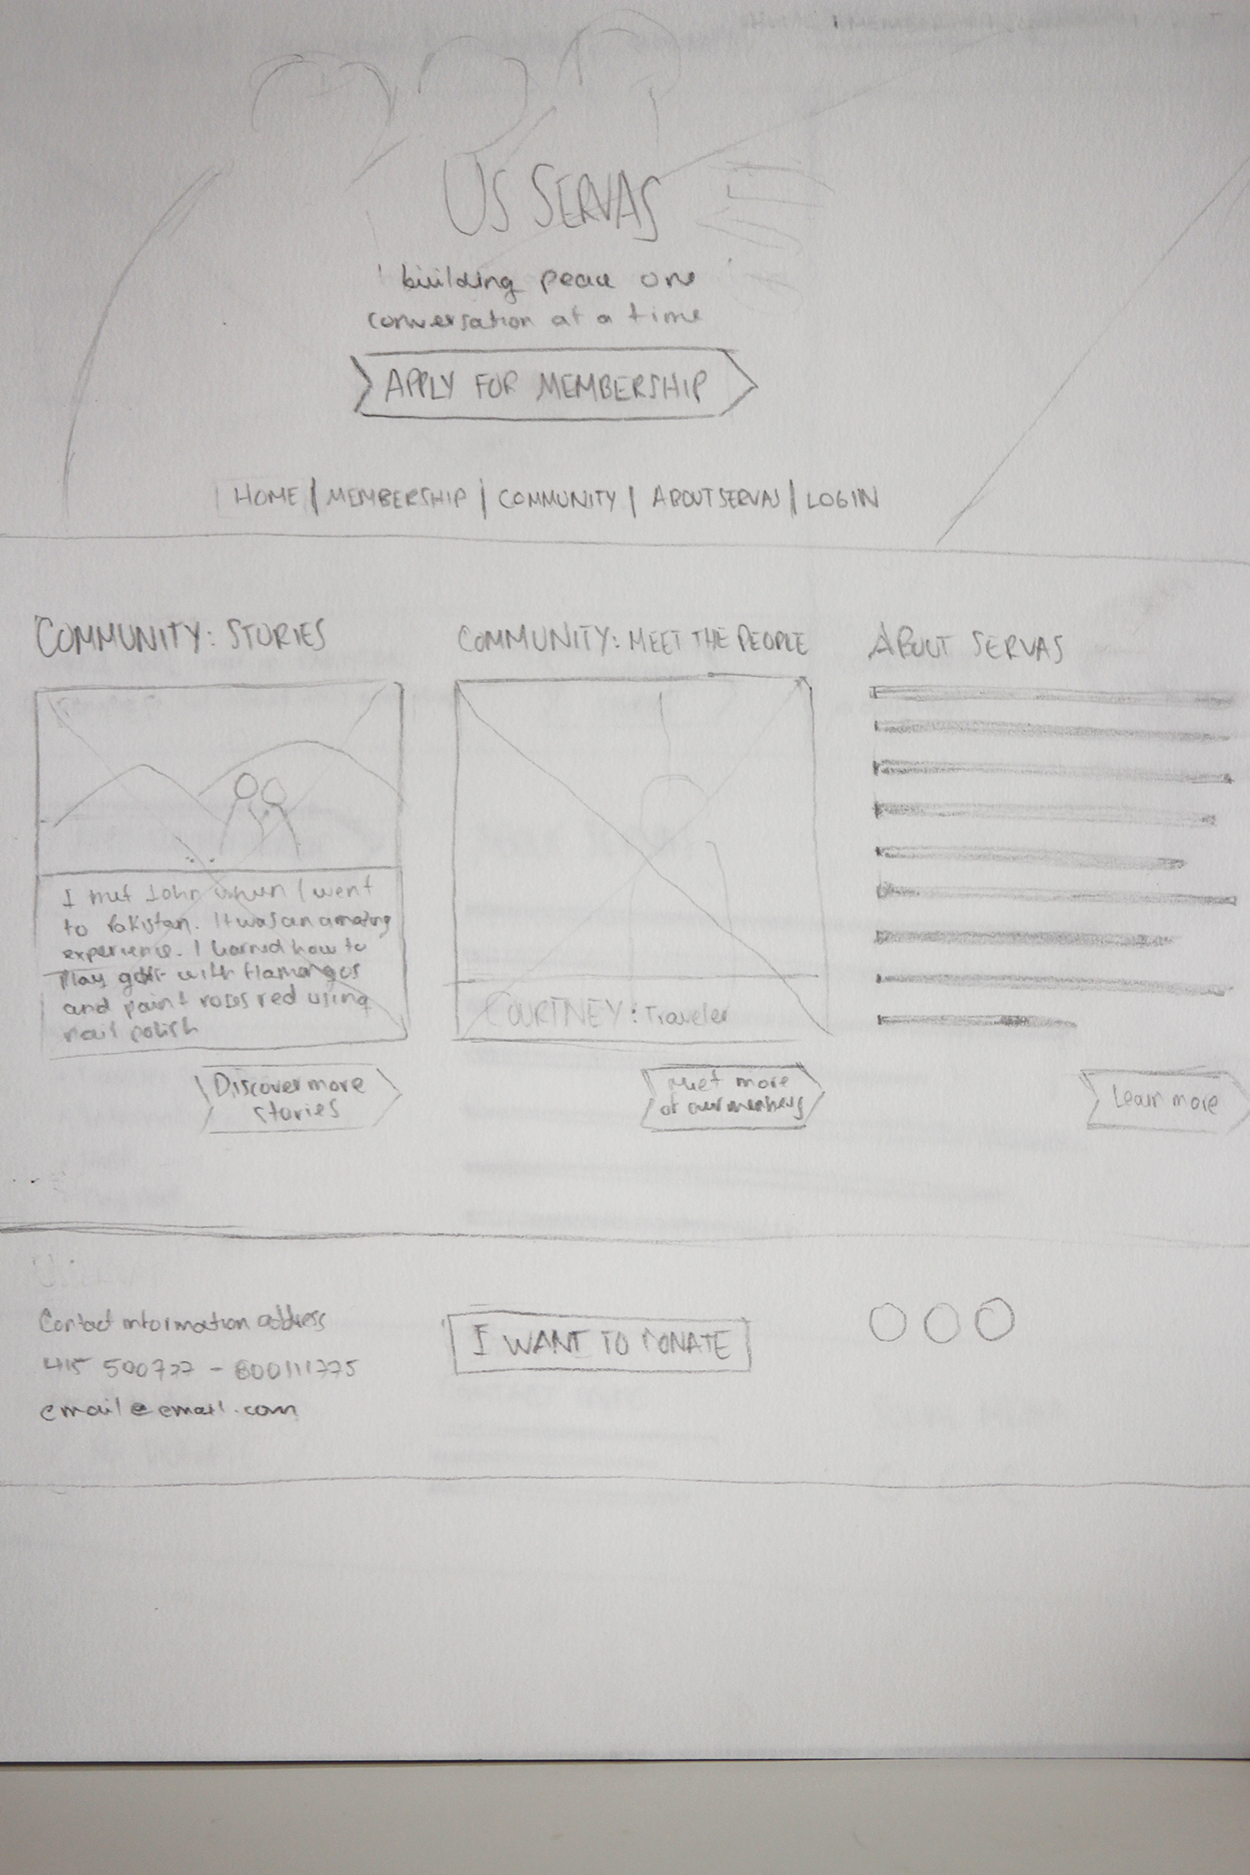 US SERVAS
' building peace one '
conversation at a time
APPLY FOR MEMBERSHIP
HOME | MEMBERSHIP | COMMUNITY | ABOUT SERVAS | LOGIN
COMMUNITY: STORIES
I met John when I went
to Pakistan. It was an amazing
experience. I learned how to
play golf with flamengos
and paint roses red using
nail polish
Discover more
stories
COMMUNITY: MEET THE PEOPLE
COURTNEY: Traveler
Meet more
of our members
ABOUT SERVAS
Learn more
Contact information address
415 500727 - 800111775
email@email.com
I WANT TO DONATE